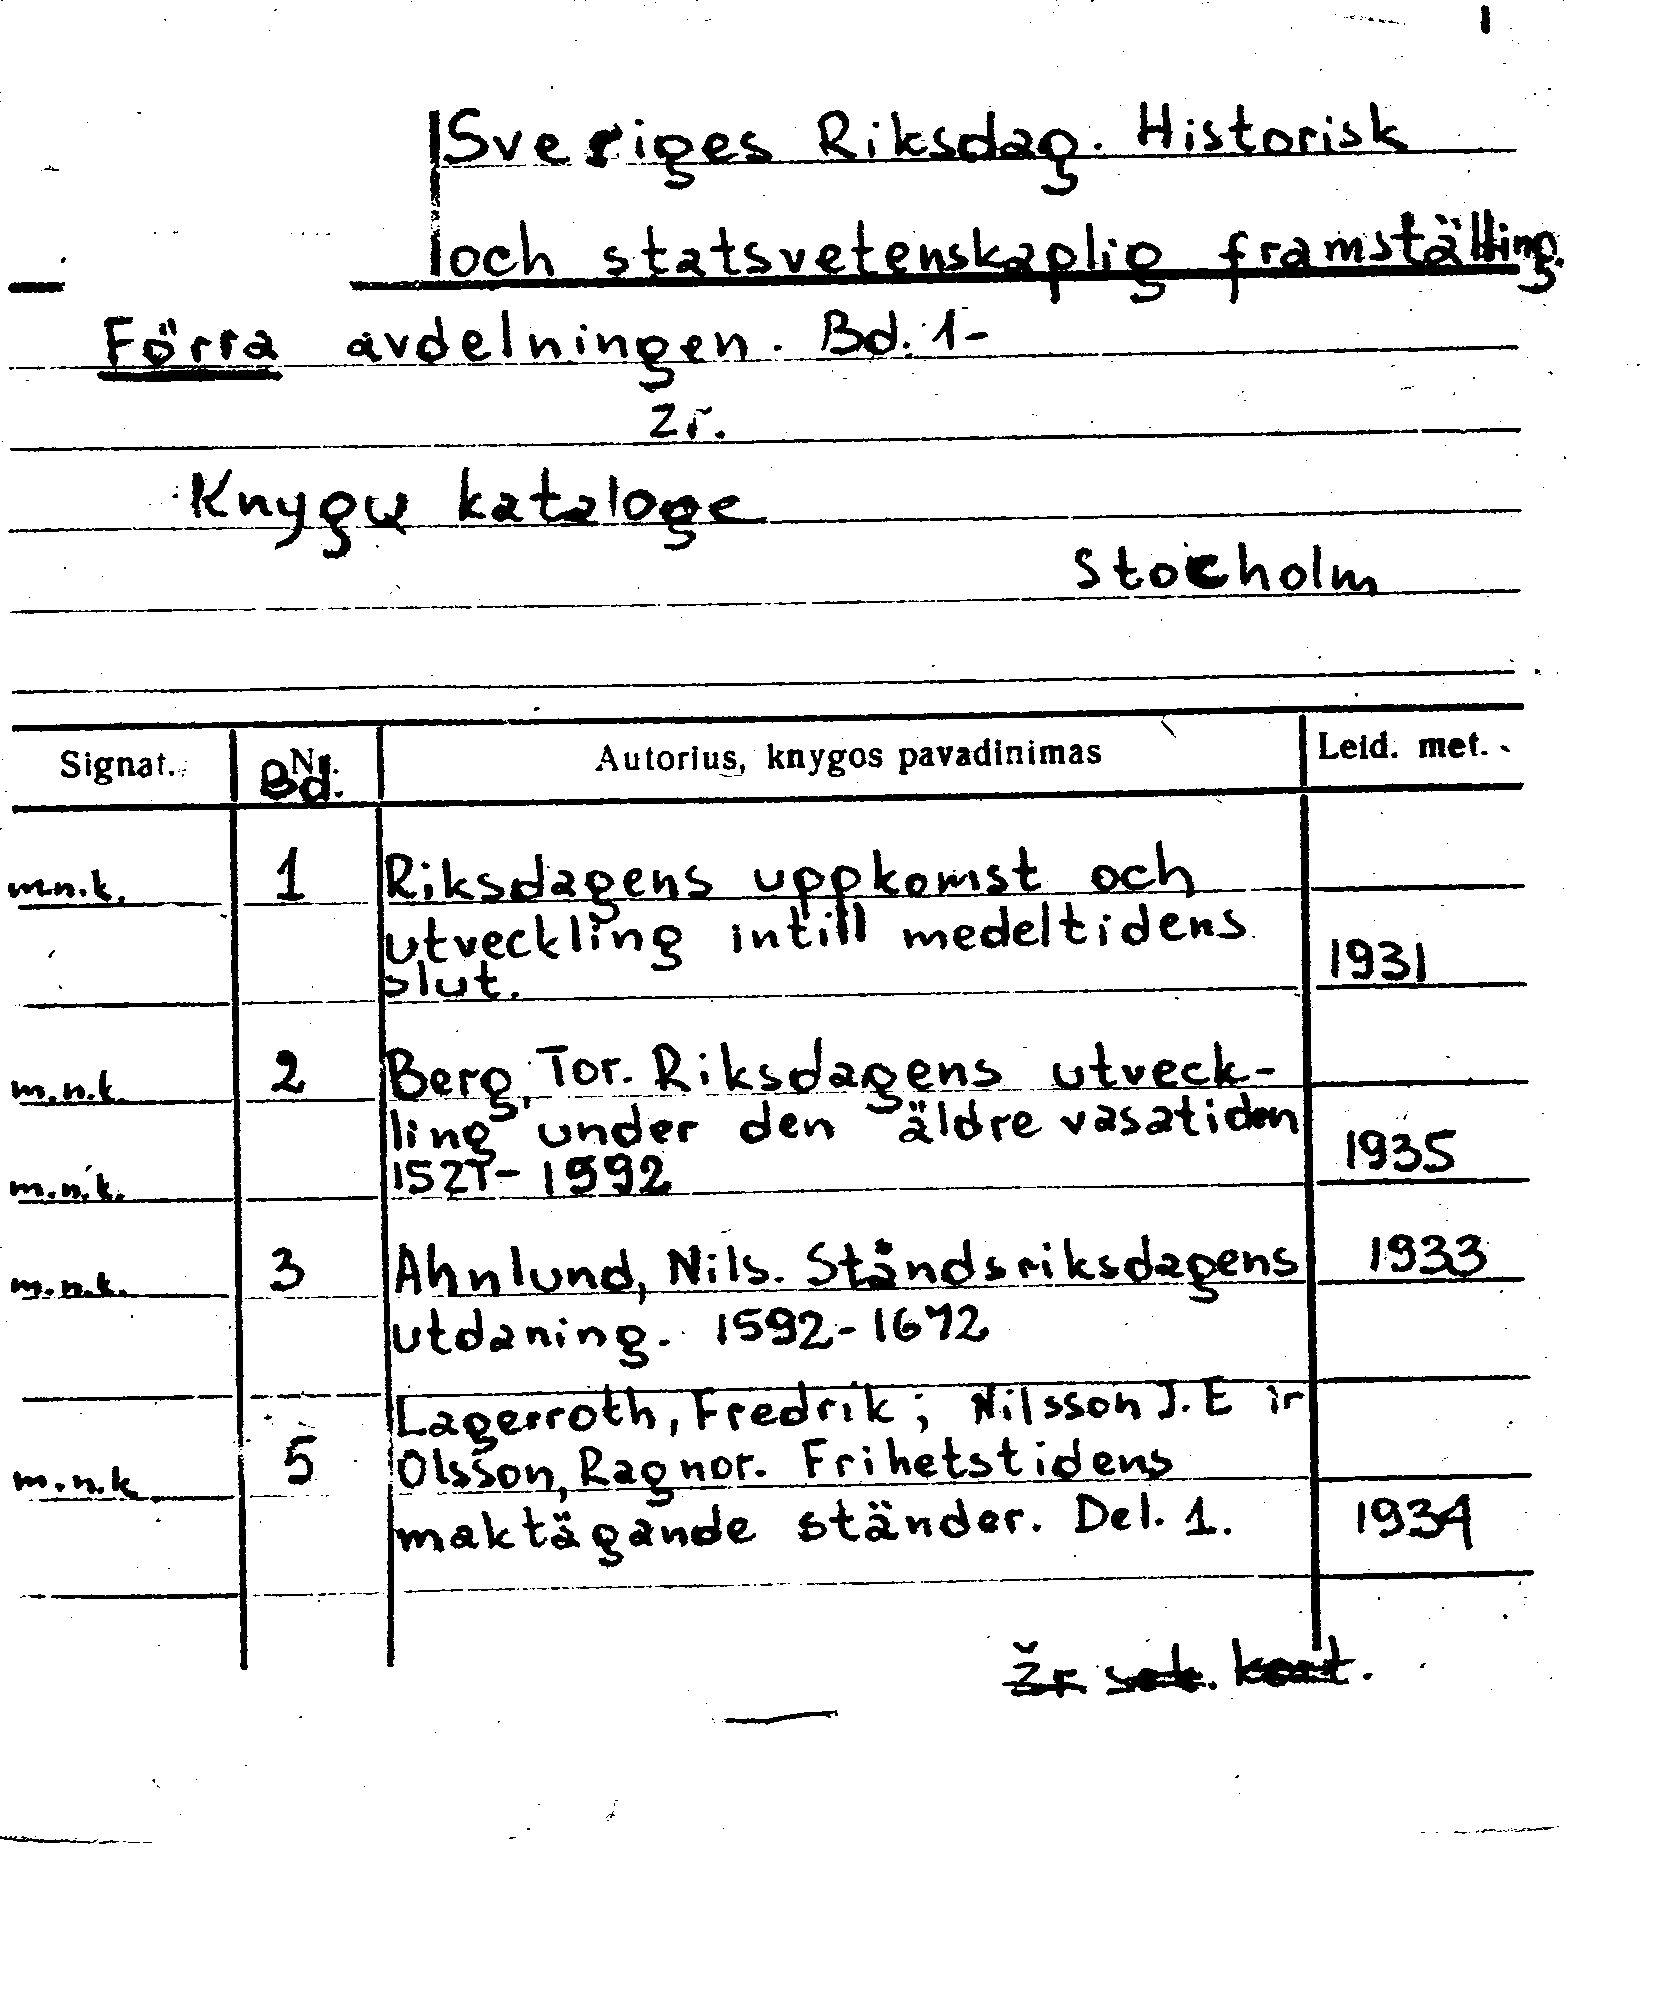 Sveriges Riksdag. Historisk
och statsvetenskaplig framställing.
Förra avdelningen. Bd. 1-
žr.
Knygų kataloge
Stocholm
Signat. Nr. Bd. Autorius, knygos pavadinimas Leid. met.
m.n.k. 1 Riksdagens uppkomst och
utveckling intill medeltidens
slut. 1931
m.n.k. 2 Berg, Tor. Riksdagens utveck-
ling under den äldre vasatiden
m.n.k. 1521-1592 1935
m.n.k. 3 Ahnlund, Nils. Ståndsriksdagens 1933
utdaning. 1592-1672
Lagerroth, Fredrik; Nilsson J. E ir
m.n.k 5 Olsson, Ragnor. Frihetstidens
maktägande ständer. Del. 1. 1934
Žr sek. kort.